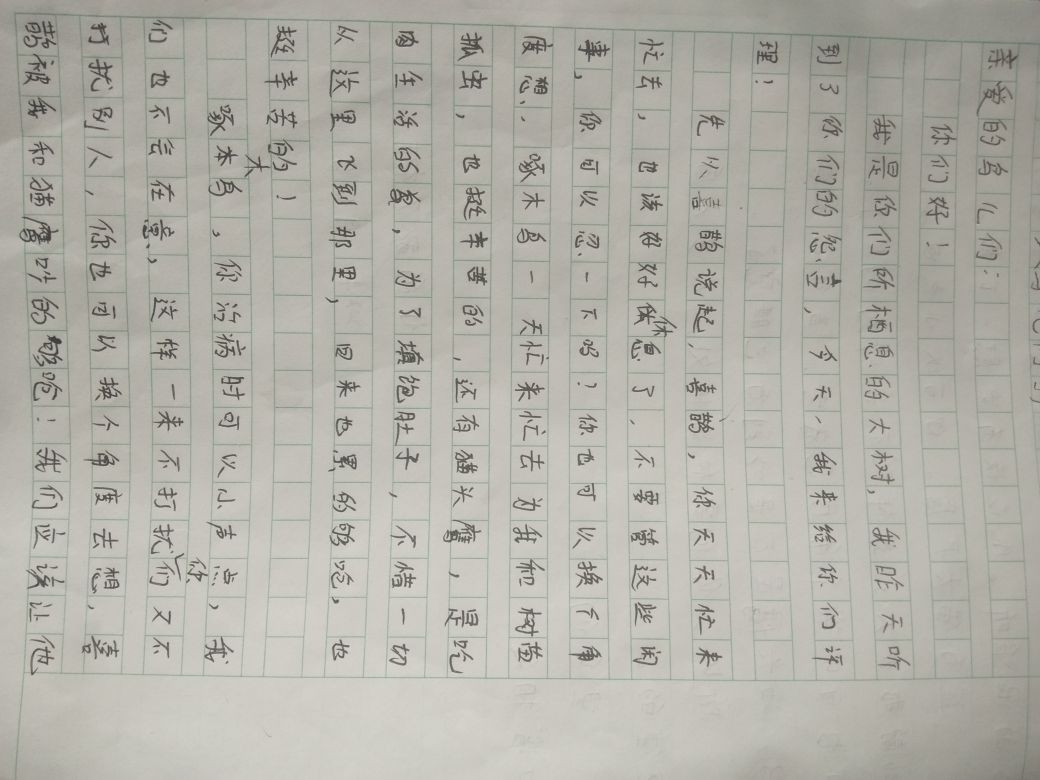 亲爱的鸟儿们:
你们好!
我是你们所栖息的大树,我昨天听
到了你们的怨言,今天,我来给你们评
理!
先从喜鹊说起,喜鹊,你天天忙来
忙去,也该好好休息了,不要管这些闲
事,你可以忍一下吗?你也可以换个角
度想,啄木鸟一天忙来忙去为我和树苗
抓虫,也挺辛苦的,还有猫头鹰,是吃
肉生活的鸟,为了填饱肚子,不惜一切
从这里飞到那里,回来也累的够呛,也
挺辛苦的!
啄木鸟,你治病时可以小声点,我
们也不会在意,这样一来不打扰你们又不
打扰别人,你也可以换个角度去想,喜
鹊被我和猫鹰吵的够呛!我们应该让他